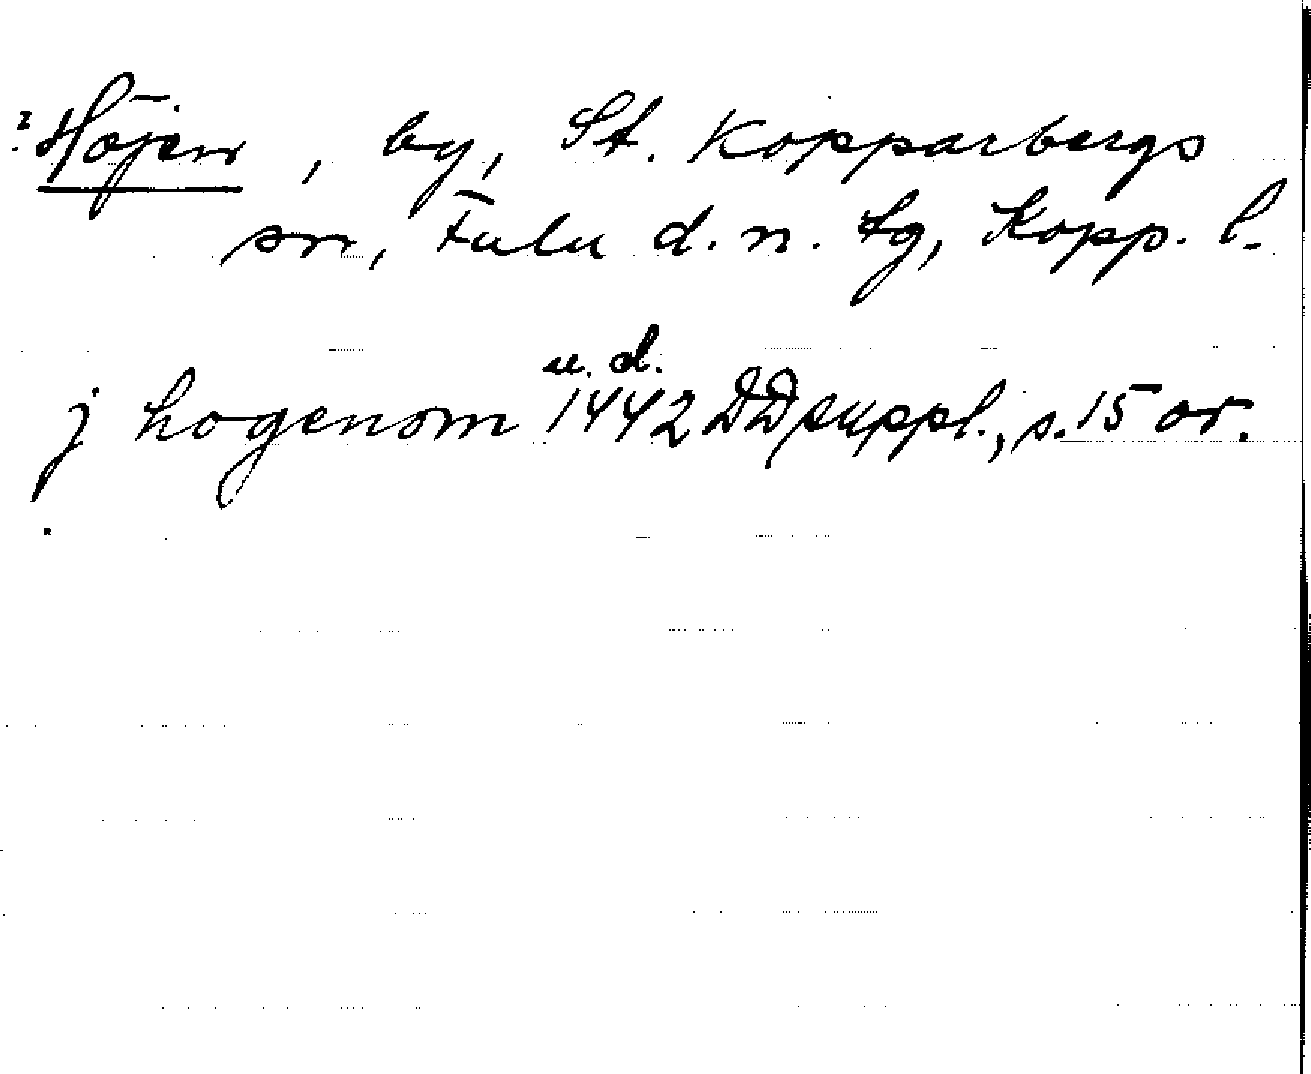 ? Höjen, by, St. Kopparbergs
sn, Falu d. n. tg, Kopp. l.
u. d.
j hogenom 1442 DD suppl., s. 15 or.